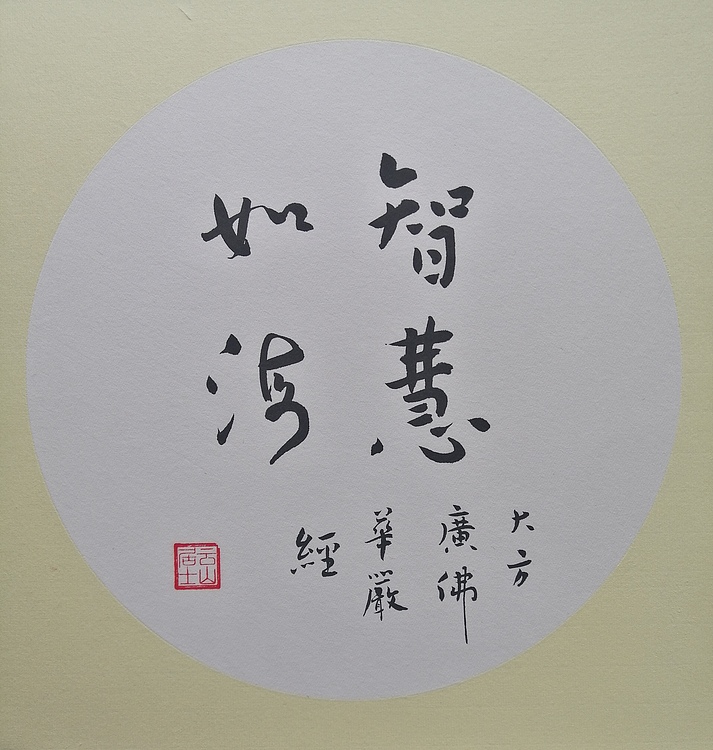 智慧
如海
大方
廣佛
華嚴
經